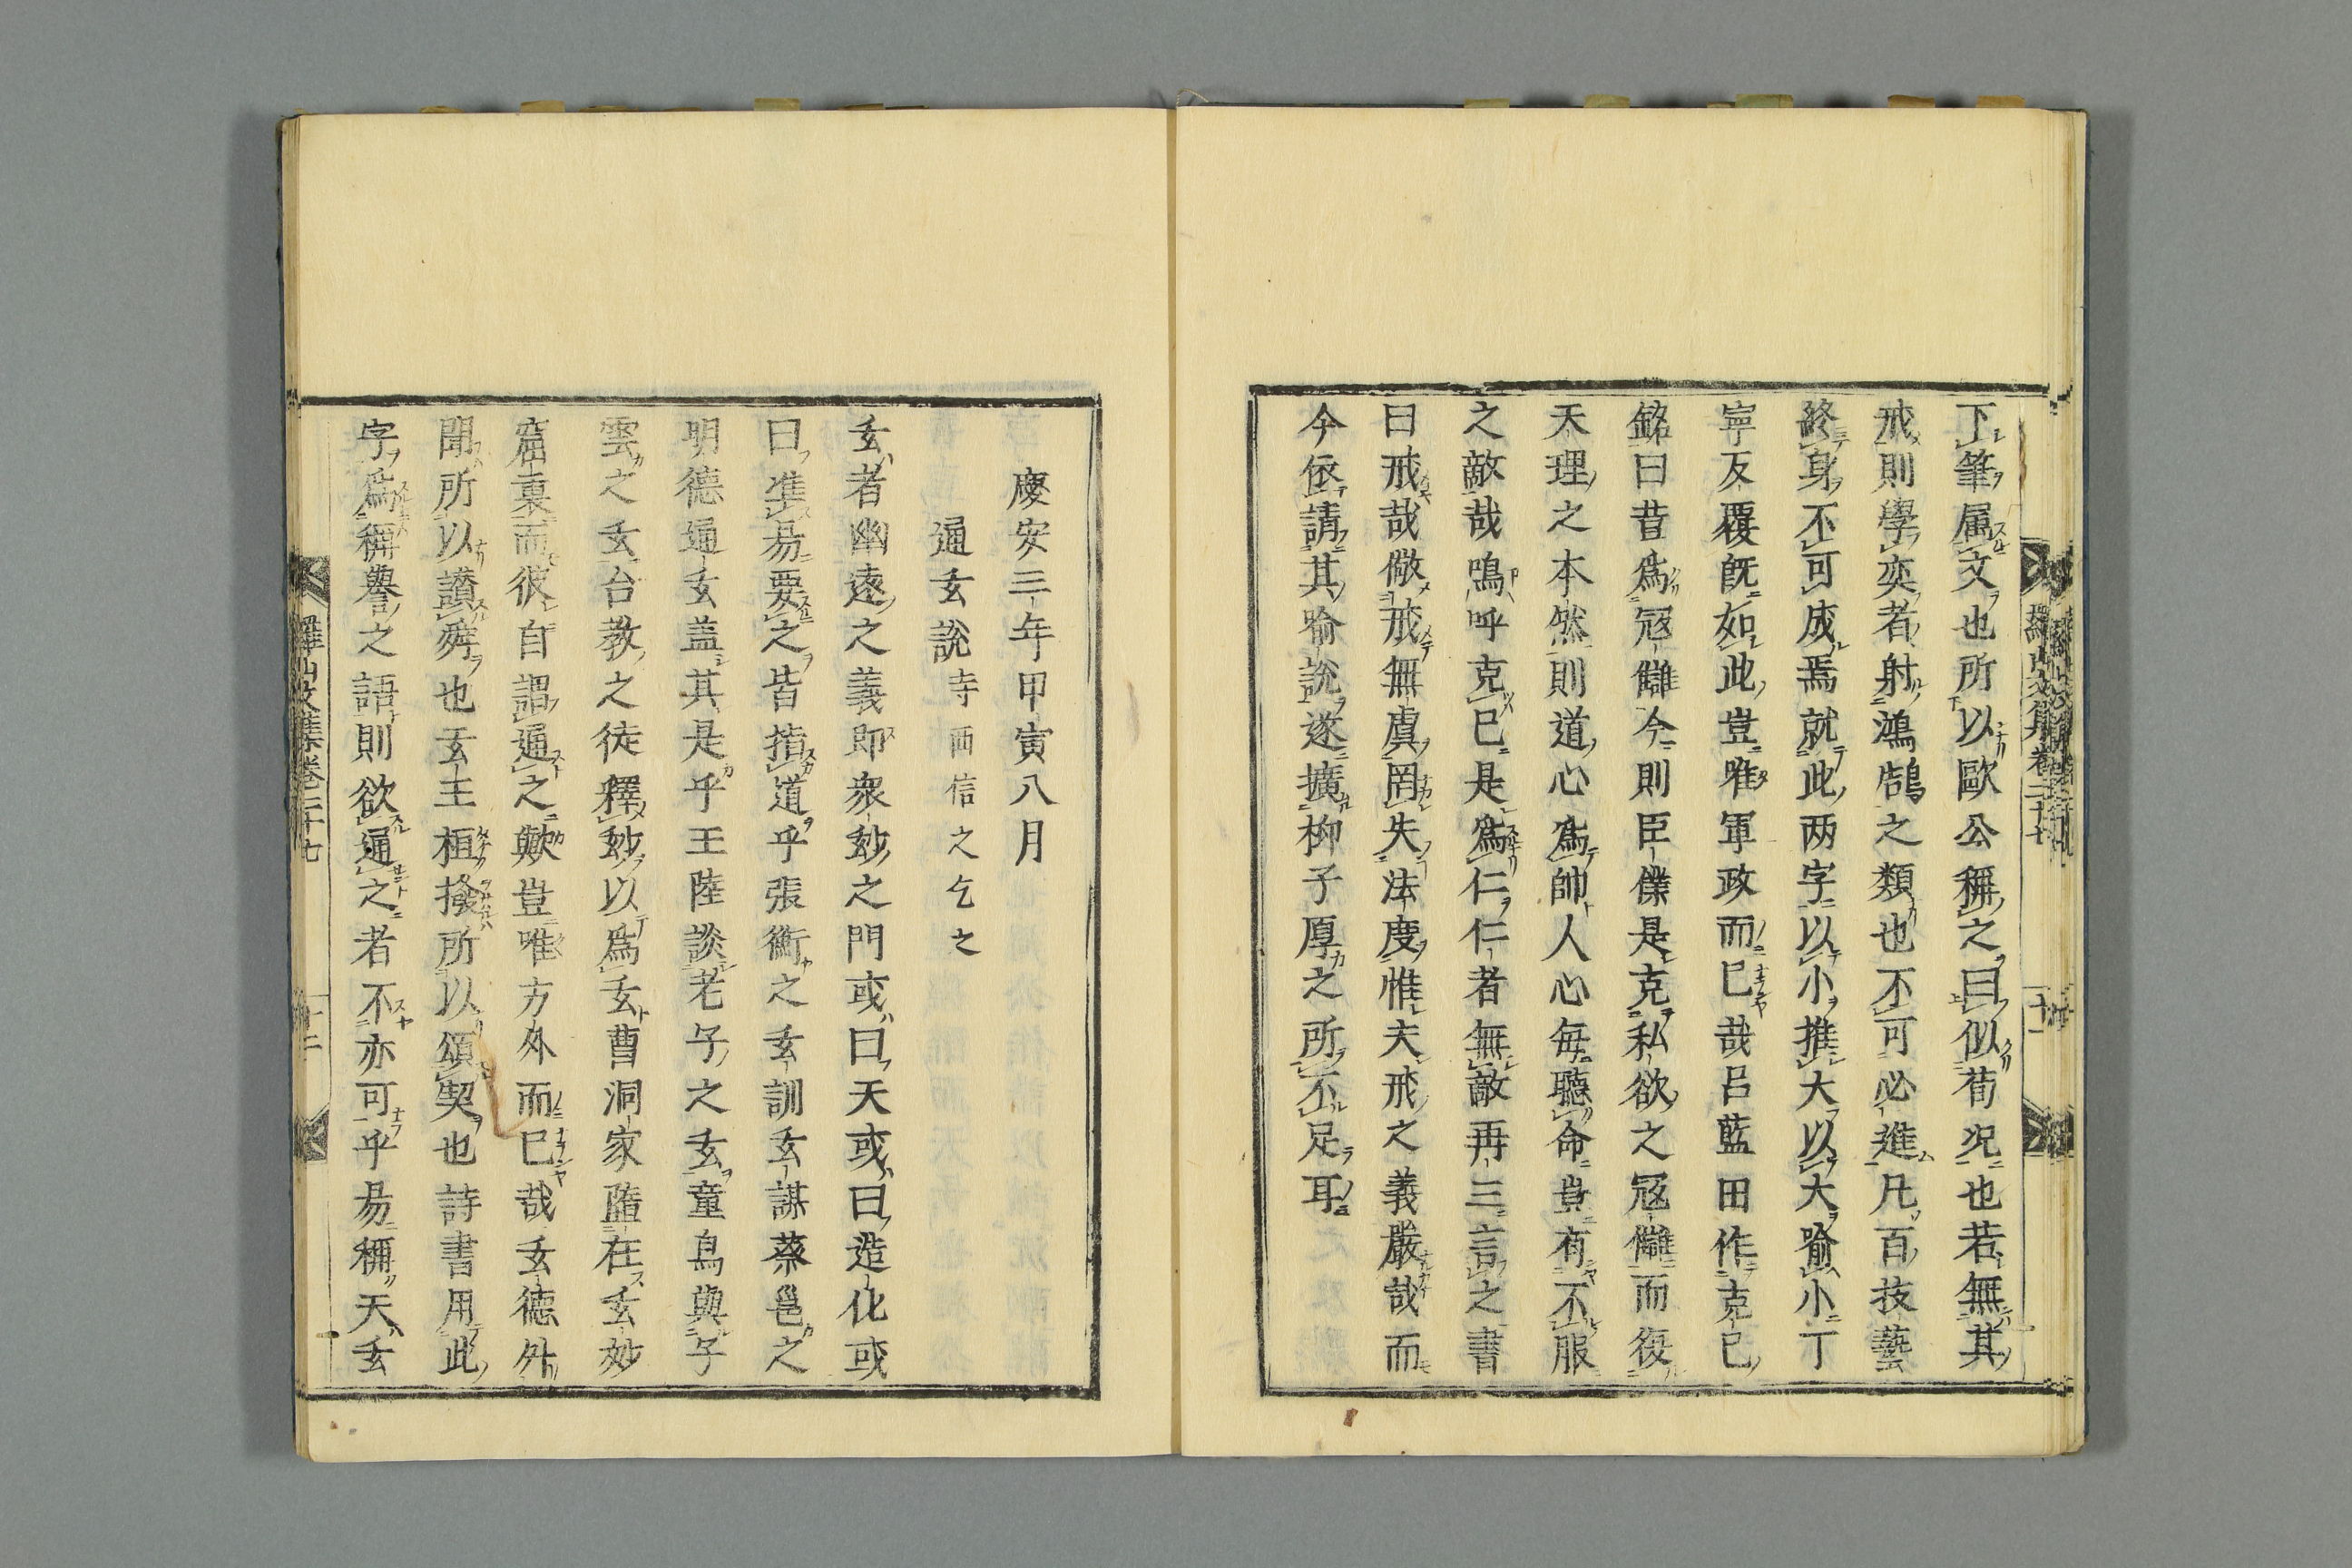 下筆属文也所以歐公稱之曰似荀况也若無其
戒則學奕者射鴻鵠之類也不可必進凡百技藝
終身不可成焉就此两字以小推大以大喻小丁
寧反覆旣如此豈唯軍政而已哉呂藍田作克己
銘曰昔爲冦讎今則臣僕是克私欲之冦讎而復
天理之本然則道心爲帥人心每聽命豈有不服
之敵哉嗚呼克已是爲仁仁者無敵再三言之書
曰戒哉儆戒無虞罔失法度惟夫戒之義嚴哉而
今依請其喻說遂擴柳子厚之所不足耳
慶安三年甲寅八月
通玄說寺西信之乞之
玄者幽遠之義即衆玅之門或曰天或曰造化或
曰準易要之皆措道乎張衡之玄訓玄謀蔡邕之
明德通玄盖其是乎王陸談老子之玄童烏與子
雲之玄台教之徒釋玅以爲玄曹洞家墮在玄妙
窟裏而彼自謂通之歟豈唯方外而已哉玄德外
聞所以讃舜也玄王桓撥所以頌契也詩書用此
字爲稱譽之語則欲通之者不亦可乎易稱天玄
羅山文集卷二十七
十一
羅山文集卷二十七
十二